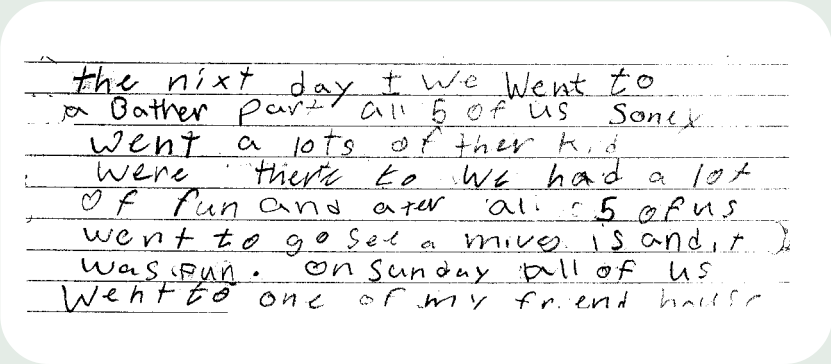 the nixt day I we went to
a Bather part all 5 of us Soney
went a lots of ther kid
were there to We had a lot
of fun and ater all 5 of us
went to go see a mives is and it
was fun. On Sunday all of us
Went to one of my friend house